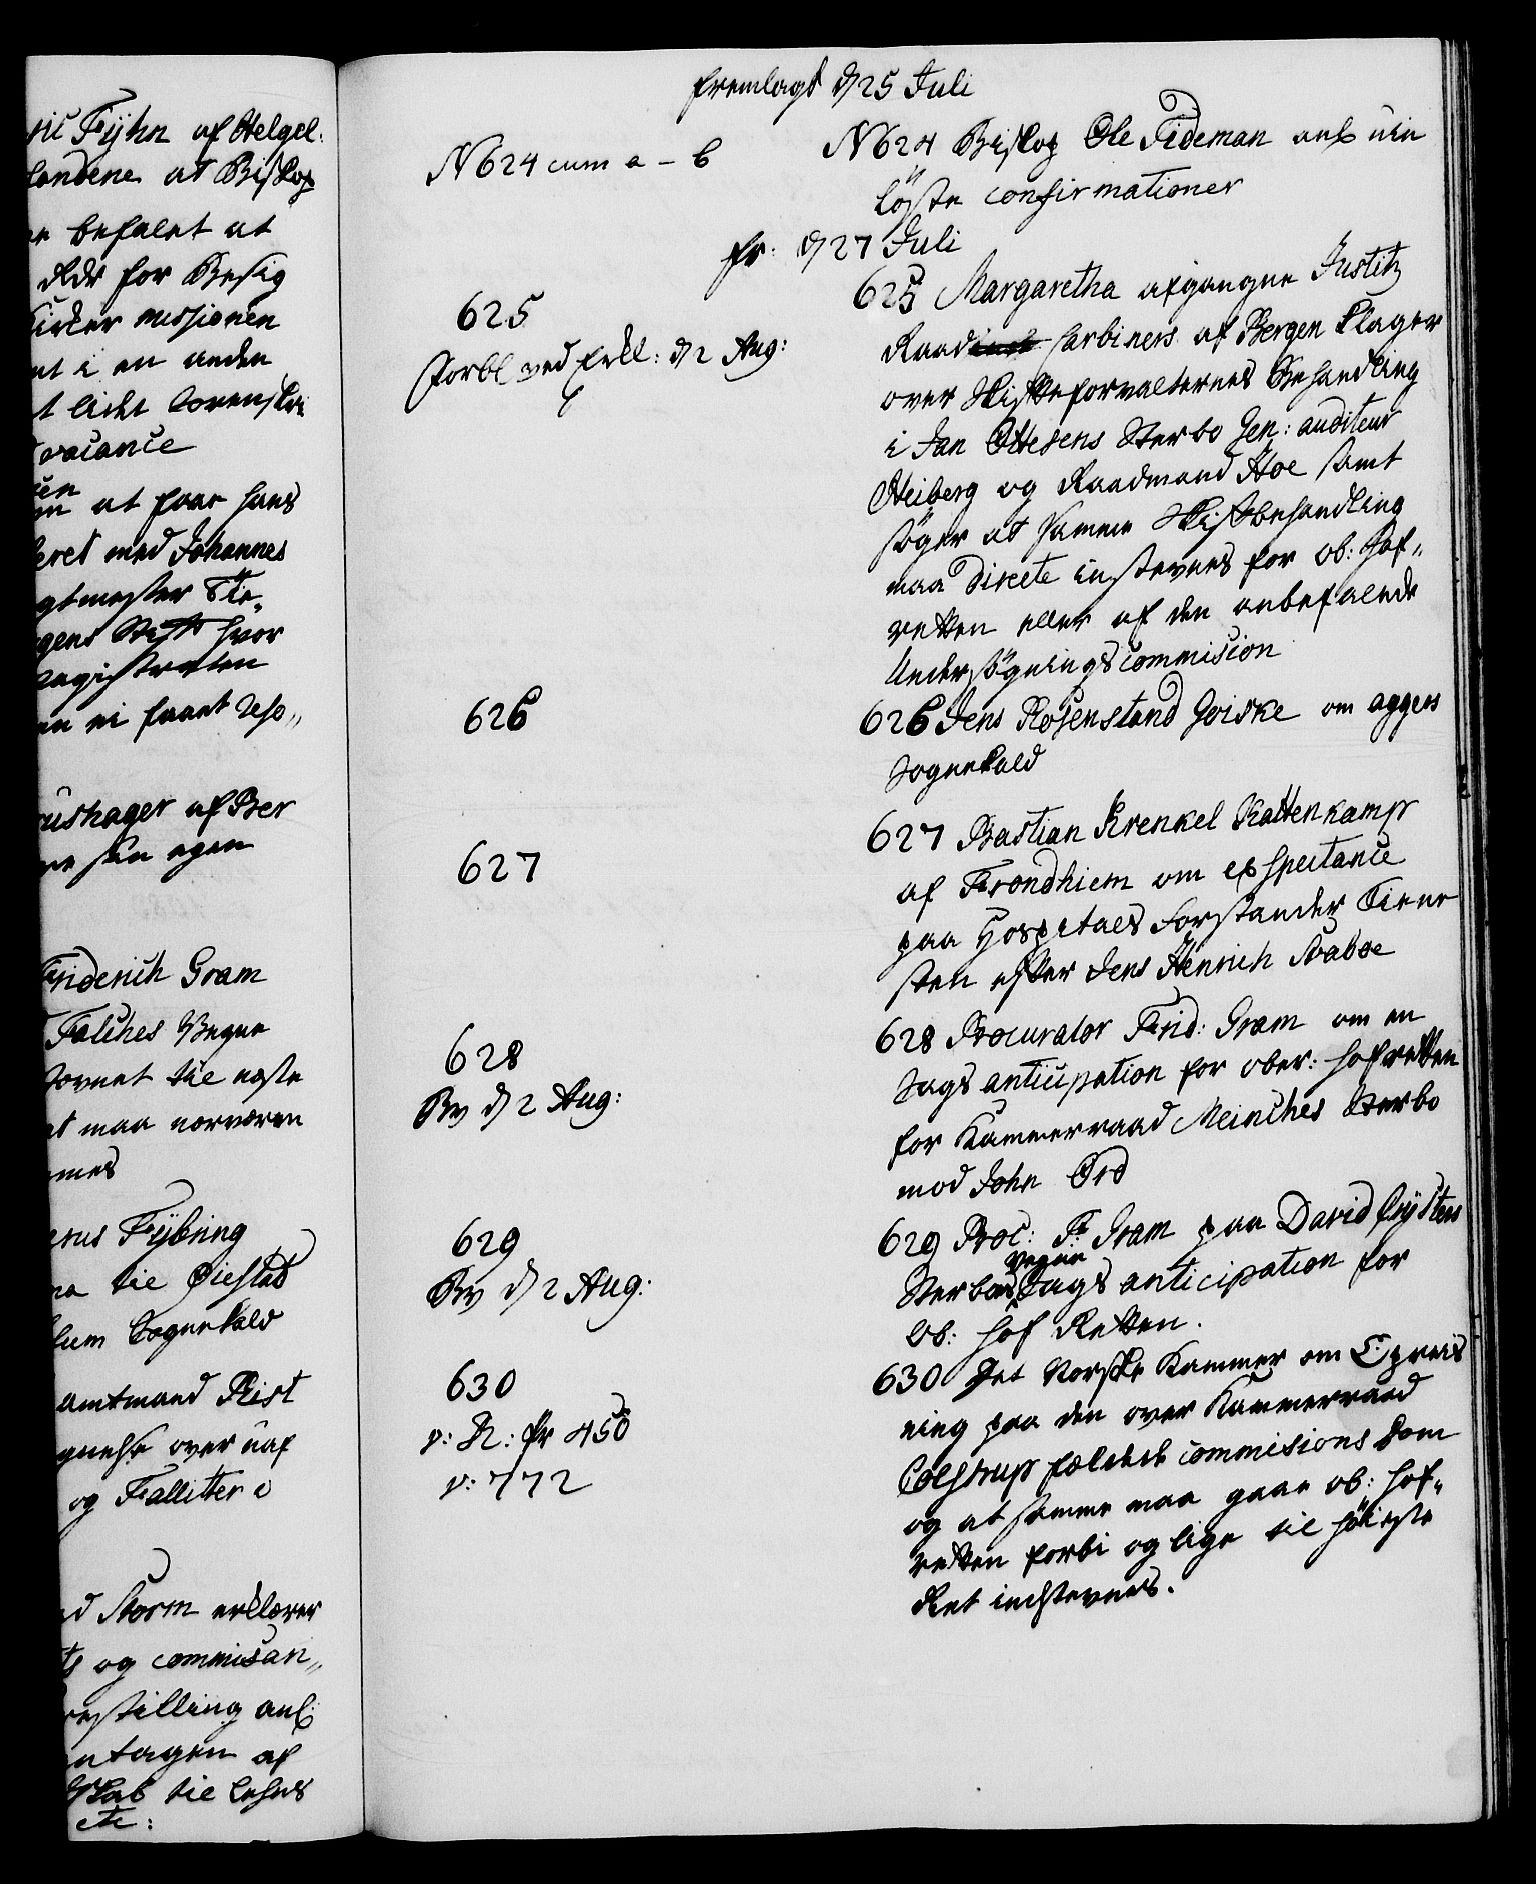 Fÿhn af Helgel:
landene at Biskop
befalet at
Rdr for Besig
Kirker missionen
i en anden
vacance
at faae hans
med Johannes
gtmester Ste„
gens Stift hvor
magistraten
faaet reso„
ushager af Ber
sin egen
Friderich Gram
Falches Vegne
til næste
maa nærværen
Fÿbring
til Øiestad
Sognekald
amtmand Rist
og Fallitter i
Storm erklærer
og commisan„
restilling anl:
ntagen af
til
etc:
fremlagt d 25 Juli
N 624 cum a – b
N 624 Biskop Ole Tideman anl: uin
löste confirmationer
fr: d 27 Juli
625
forbl ved Erkl: d 2 Aug:
625 Margaretha afgangne Justitz
Raad Garbiners af Bergen klager
over Skifteforvalternes Behandling
i Jan Ottesens Sterbo Gen: auditeur
Heiberg og Raadmand Hoe samt
söger at samme Skiftebehandling
maa directe instevnes for Ob: Hof„
retten eller af den anbefalede
Undersögnings commision
626
626 Jens Rosenstand Goiske om aggers
Sognekald
627
627 Bastian Krenkel Kattenkamp
af Trondhiem om exspectance
paa Hospitals Forstander Tiene
sten efter Jens Henrich Svaboe
628
Bv d 2 Aug:
628 Procurator Frid: Gram om en
Sags anticipation for ober: Hofretten
for Kammerraad Meinches Sterbo
mod John Ord
629
Bv d 2 Aug:
629 Proc: Fr Gram paa David Crÿsters
Sterboes Vegne Sags anticipation for
Ob: Hof Retten.
630
v: R: fr 450
v: 772
630 Det Norske Kammer om Opreis
ning paa den over Kammerraad
Colstrup fældede commisions Dom
og at samme maa gaae ob: Hof„
retten forbi og lige til höieste
Ret indstevnes.